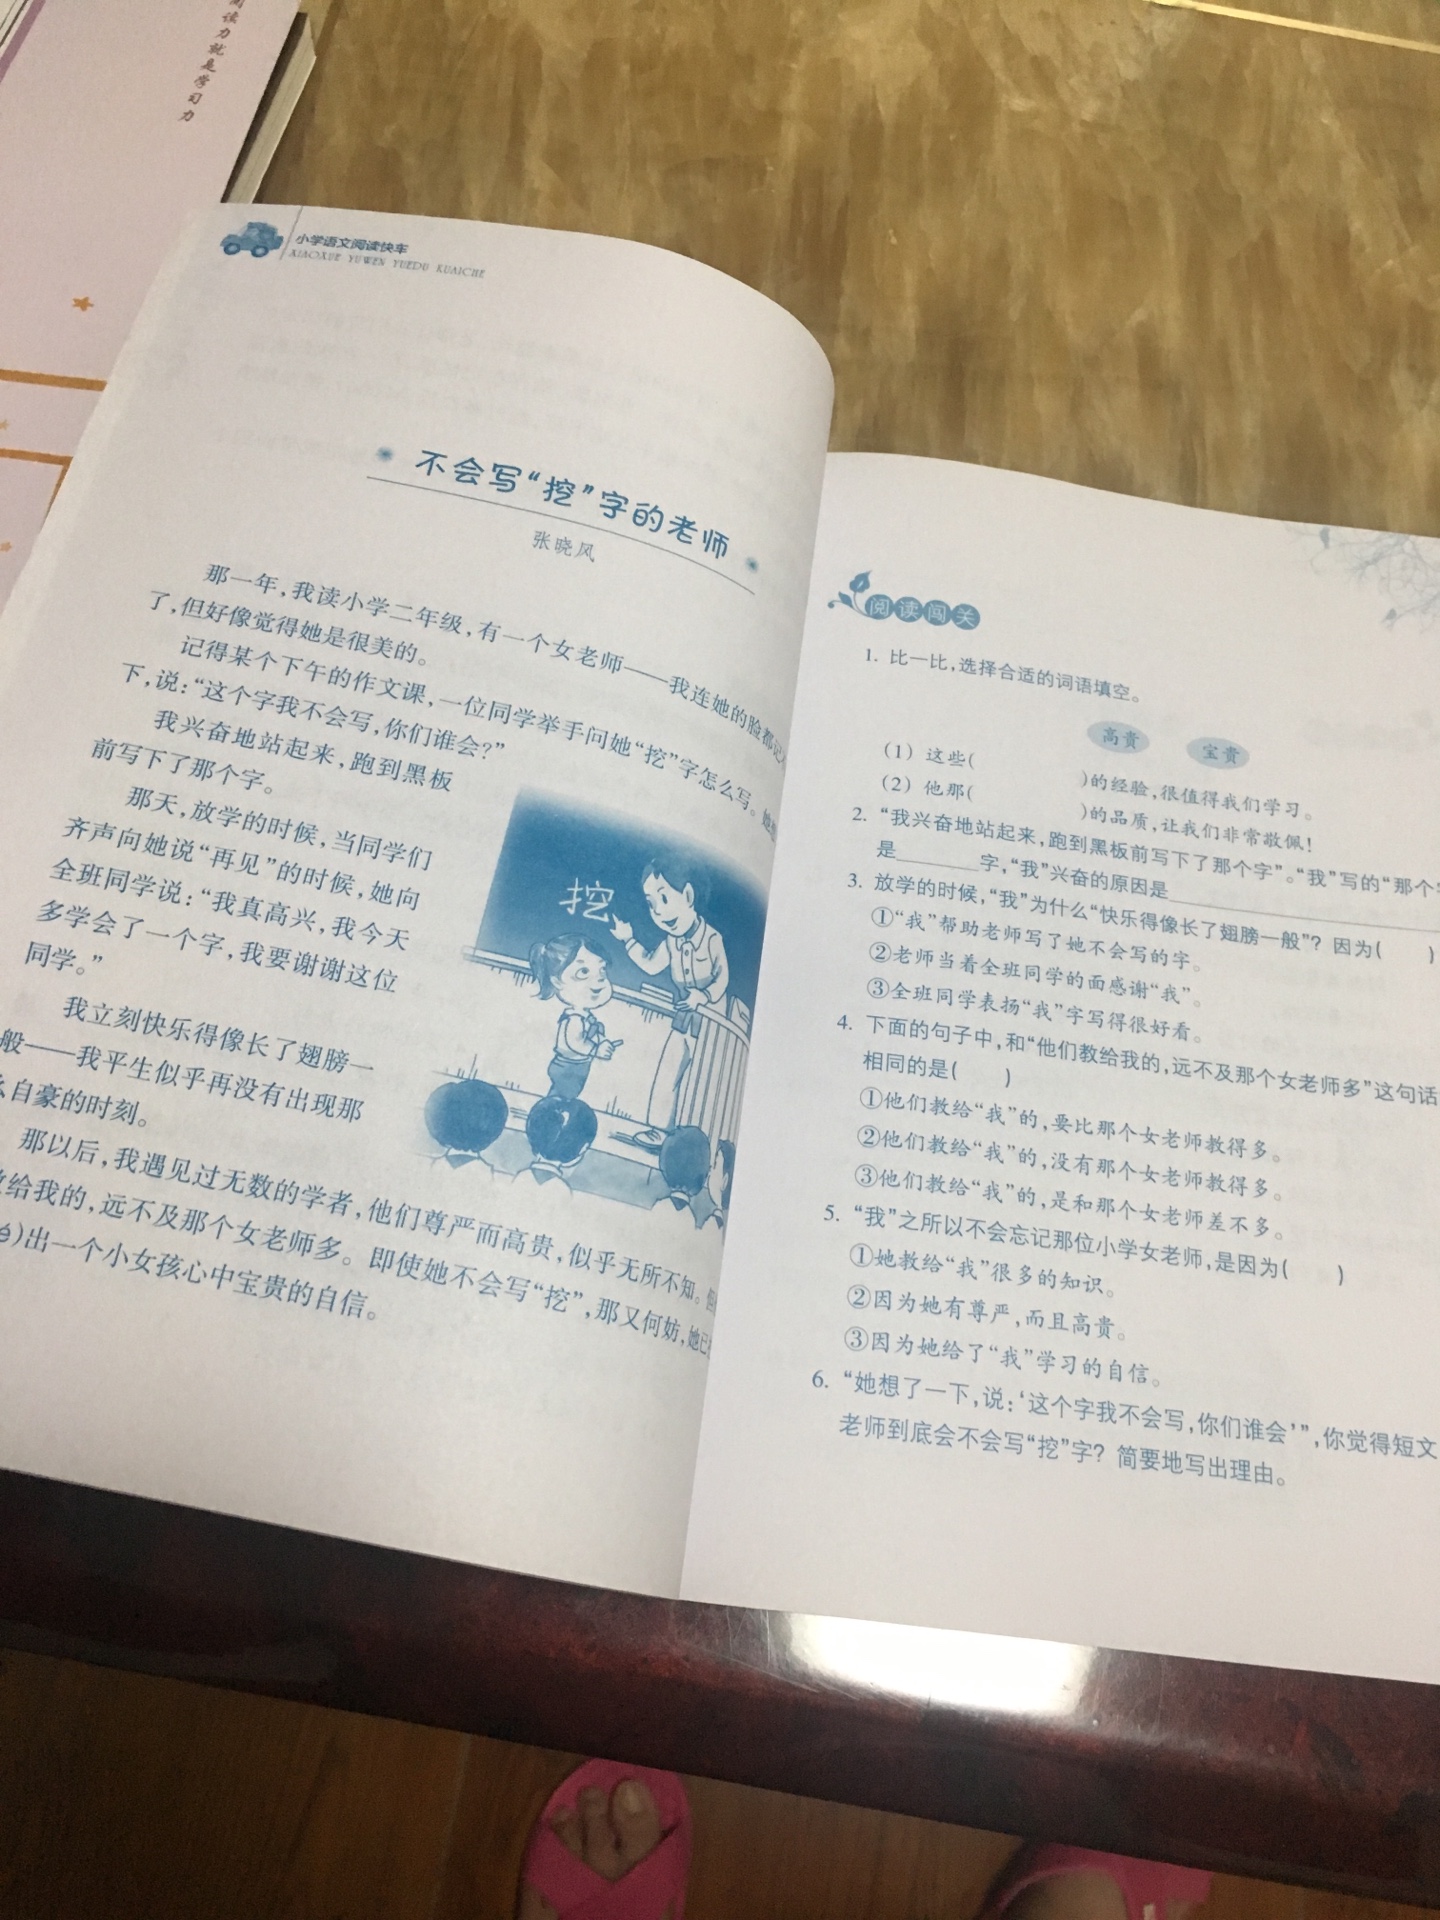 阅读力就是学习力
小学语文阅读快车
XIAOXUE YUWEN YUEDU KUAICHE
不会写“挖”字的老师
张晓风
那一年,我读小学二年级,有一个女老师——我连她的脸都记
了,但好像觉得她是很美的。
记得某个下午的作文课,一位同学举手问她“挖”字怎么写。她想
下,说:“这个字我不会写,你们谁会?”
我兴奋地站起来,跑到黑板
前写下了那个字。
那天,放学的时候,当同学们
齐声向她说“再见”的时候,她向
全班同学说:“我真高兴,我今天
多学会了一个字,我要谢谢这位
同学。”
我立刻快乐得像长了翅膀一
般——我平生似乎再没有出现那
么自豪的时刻。
那以后,我遇见过无数的学者,他们尊严而高贵,似乎无所不知。但
给我的,远不及那个女老师多。即使她不会写“挖”,那又何妨,她已
)出一个小女孩心中宝贵的自信。
挖
阅读闯关
1. 比一比,选择合适的词语填空。
高贵 宝贵
(1) 这些( )的经验,很值得我们学习。
(2) 他那( )的品质,让我们非常敬佩!
2. “我兴奋地站起来,跑到黑板前写下了那个字”。“我”写的“那个字
是______字,“我”兴奋的原因是______
3. 放学的时候,“我”为什么“快乐得像长了翅膀一般”? 因为( )
①“我”帮助老师写了她不会写的字。
②老师当着全班同学的面感谢“我”。
③全班同学表扬“我”字写得很好看。
4. 下面的句子中,和“他们教给我的,远不及那个女老师多”这句话
相同的是( )
①他们教给“我”的,要比那个女老师教得多。
②他们教给“我”的,没有那个女老师教得多。
③他们教给“我”的,是和那个女老师差不多。
5. “我”之所以不会忘记那位小学女老师,是因为( )
①她教给“我”很多的知识。
②因为她有尊严,而且高贵。
③因为她给了“我”学习的自信。
6. “她想了一下,说:‘这个字我不会写,你们谁会’”,你觉得短文
老师到底会不会写“挖”字? 简要地写出理由。